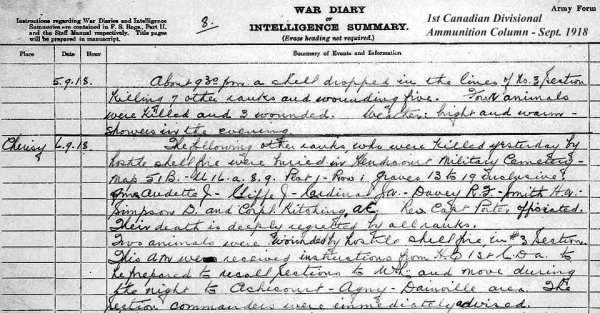 Instructions regarding War Diaries and Intelligence
Summaries are contained in F. S. Regs., Part II.
and the Staff Manual respectively. Title pages
will be prepared in manuscript.
8.
WAR DIARY
or
INTELLIGENCE SUMMARY.
(Erase heading not required.)
Army Form
1st Canadian Divisional
Ammunition Column - Sept. 1918
Place
Summary of Events and Information
5.9.18. About 930 pm a shell dropped in the lines of No. 3 Section
killing 7 other ranks and wounding five. Four animals
were killed and 3 wounded. Weather: bright and warm -
showers in the evening.
Cherisy 6.9.18. The following other ranks, who were killed yesterday by
hostile shell fire were buried in Hendecourt Military Cemetery -
Map 51B. - U 16.a. 8.9. Plot 1 - Row 1. graves 13 to 19 inclusive:
Audette J - Cliffe J - Cardinal - Davey R.F - Smith H.
Simpson D. and Corpl Kitshing, A.E. Rev Capt Porter officiated.
Their death is deeply regretted by all ranks.
Two animals were wounded by hostile shell fire, in #3 Section.
This AM we received instructions from H.Q 1st C.D.a. to
be prepared to recall sections to and move during
the night to Achicourt - Agny - Dainville area. The
section commanders were immediately advised.